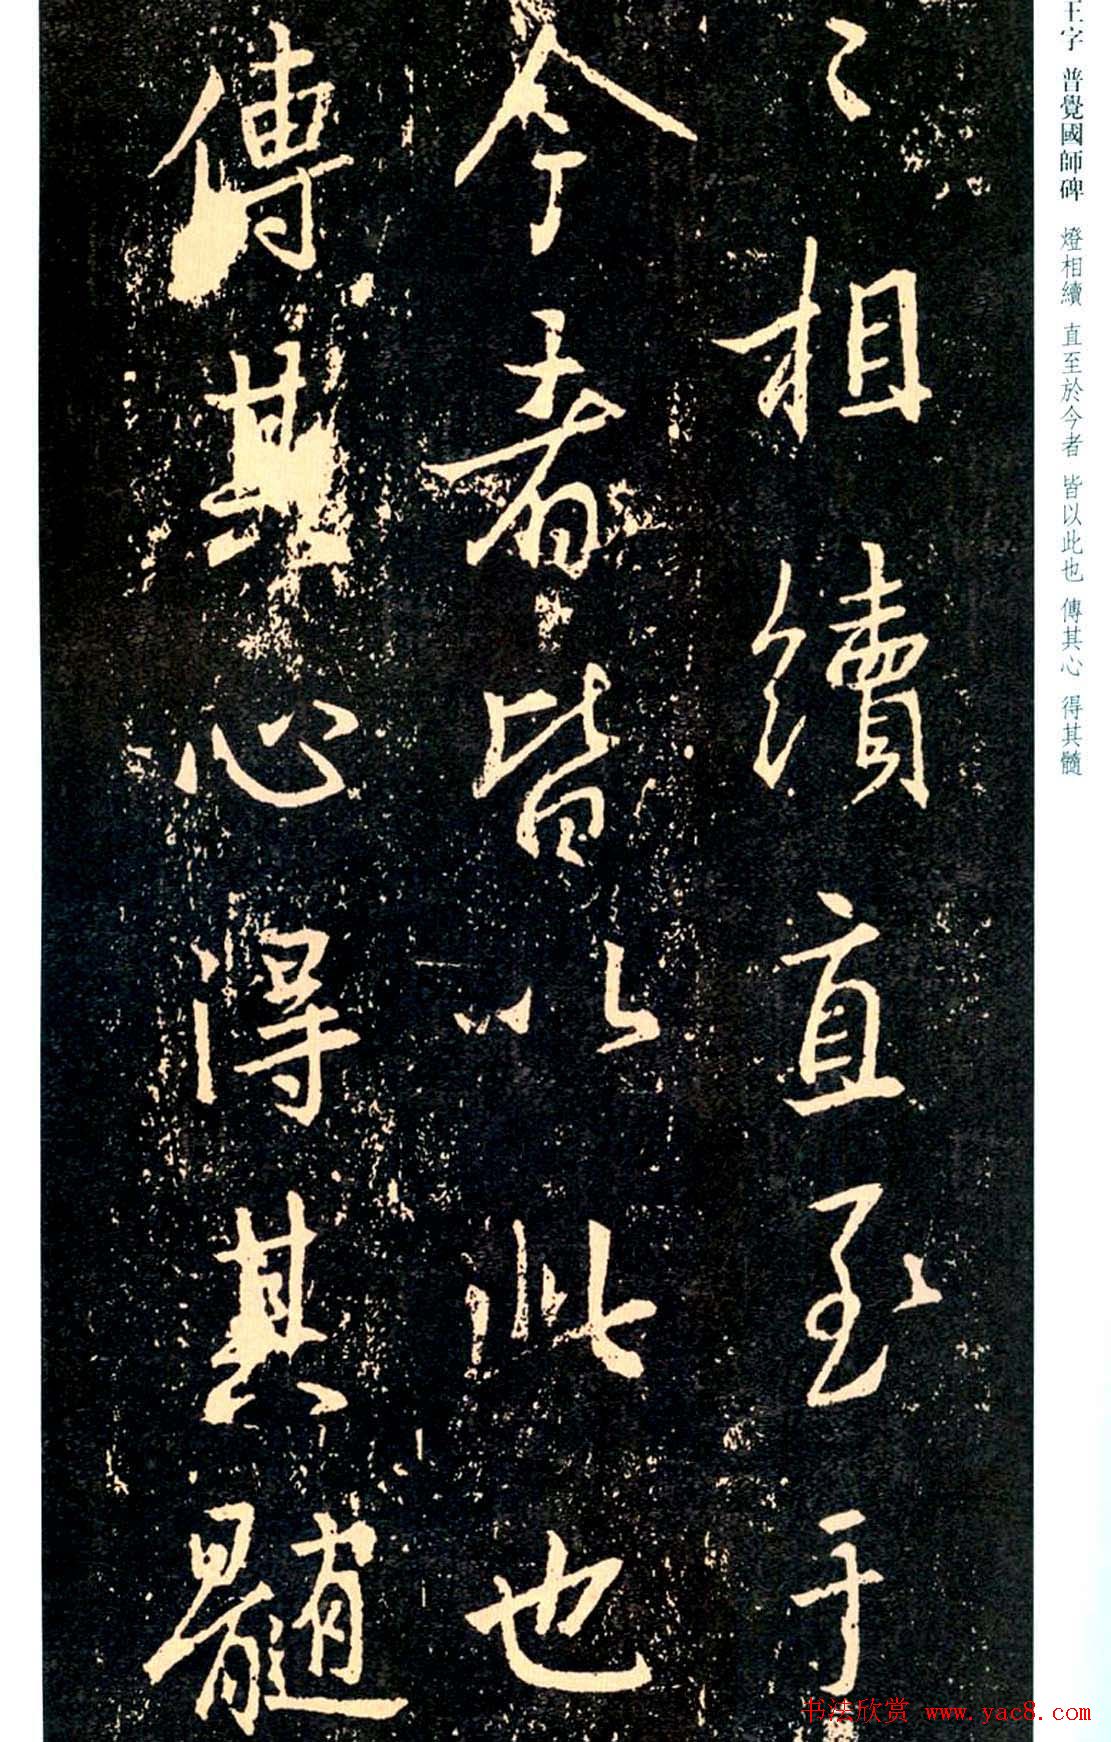 王字 普覺國師碑 燈相續 直至於今者 皆以此也 傳其心 得其髓
〻相續直至于
今者皆以此也
傳其心得其髓
书法欣赏 www.yac8.com